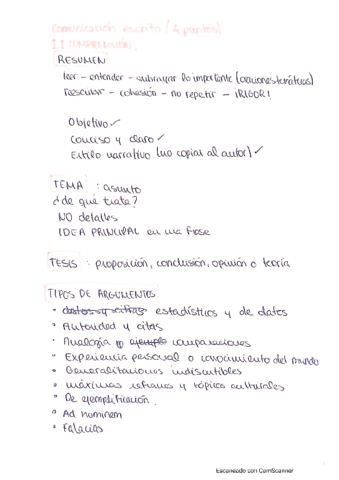 Comunicación escrita (4 puntos)
1.1 COMPRENSIÓN.
RESUMEN
leer - entender - subrayar lo importante (oraciones temáticas)
- cohesión - no repetir - ¡RIGOR!
Objetivo ✓
Conciso y claro ✓
Estilo narrativo (no copiar al autor) ✓
TEMA : asunto
¿de qué trata?
NO detalles
IDEA PRINCIPAL en una frase
TESIS : proposición, conclusión, opinión o teoría
TIPOS DE ARGUMENTOS
• estadísticos y de datos
• Autoridad y citas
• Analogía ejemplo comparaciones
• Experiencia personal o conocimiento del mundo
• Generalizaciones indiscutibles
• máximas refranes y tópicos culturales
• De ejemplificación.
• Ad hominem
• Falacias
Escaneado con CamScanner